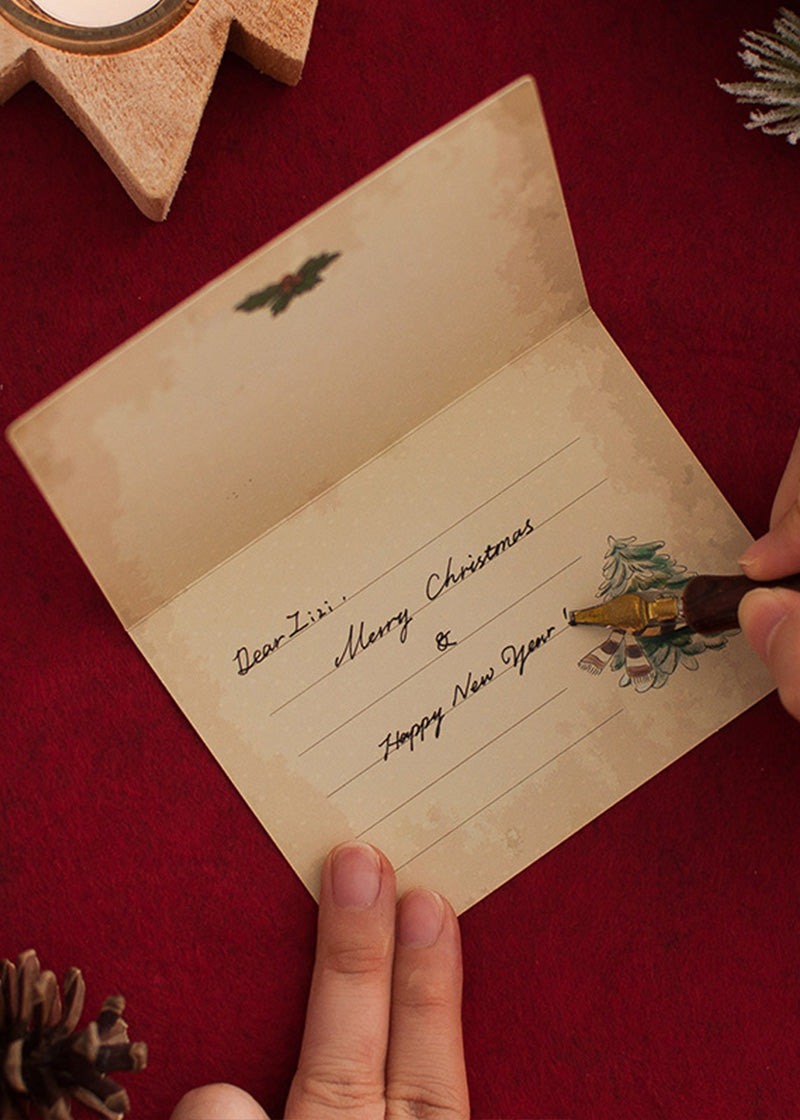 Dear Zizi,
Merry Christmas
&
Happy New Year!